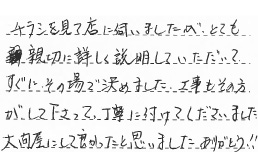 チラシを見て店に伺いましたが、とても
親切に詳しく説明していただいて
すぐにその場で決めました。工事もその方
がして下さって、丁寧に付けてくださいました
太陽屋にして良かったと思いました ありがとう!!